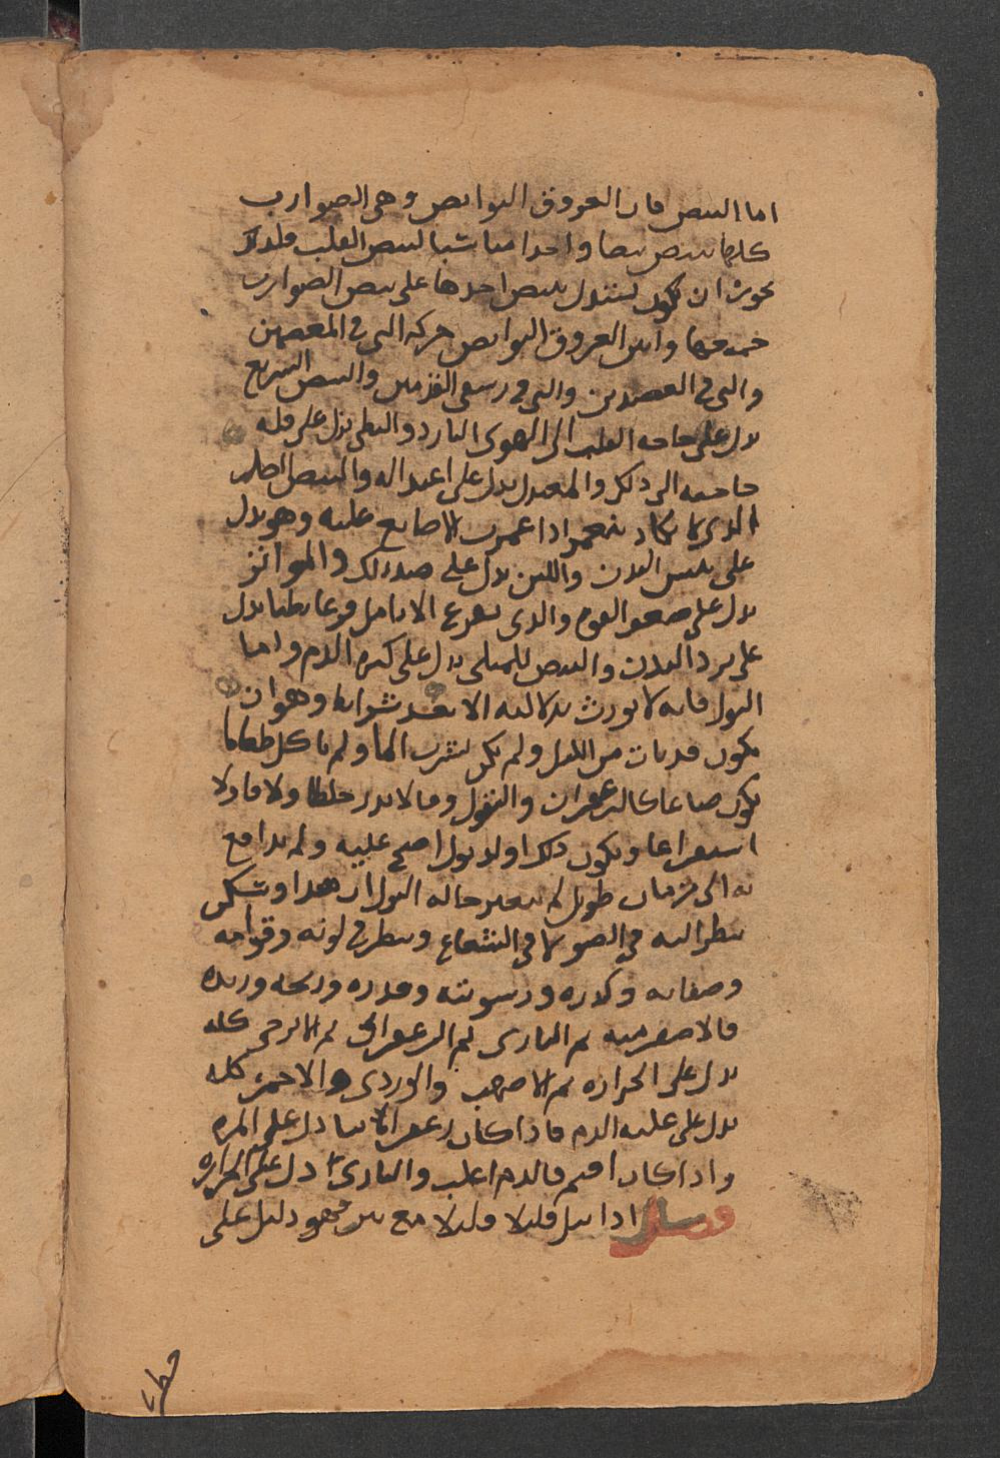 اما النبض فان العروق النوابض وهى الضوارب
كلها تنبض نبضا واحدا مناسبا لنبض القلب فلذلك
يجوز ان يكون يستدل بنبض احدها على نبض الضوارب
جميعها وابين العروق النوابض حركه التى فى المعصمين
والتى فى العضدين والتى فى رسغى القدمين والنبض السريع
يدل على حاجه القلب الى الهوى البارد والبطى يدل على قله
حاجته الى ذلك والمعتدل يدل على اعتداله والنبض الصلب
الذى لا يكاد ينغمز اذا غمزت الاصابع عليه وهو يدل
على يبس البدن واللين يدل على ضد ذلك والمواتر
يدل على ضعف القوه والذى يقرع الانامل قرعا بطيا يدل
على برد البدن والنبض الممتلى يدل على كثره الدم واما
البول فانه لا يورث بدلالته الا بعد شرايط وهو ان
يكون قد بات من الليل ولم يكن يشرب الما ولم ياكل طعاما
يكون صباغا كالزعفران والبقول وما لا يدر خلطا ولا
استفراغا ويكون ذلك اول بول اصبح عليه ولم يدافع
به الى زمان طويل لم يتغير حاله البول ان هدا وسكن
ينظر اليه فى الضو لا فى الشعاع وينظر فى لونه وقوامه
وصفايه وكدره ورسوبته وقدره وريحه وزبده
فالاصفر منه ثم النارى ثم الزعفرانى ثم الاترجى كله
يدل على الحراره ثم الاصهب والوردى والاحمر كله
يدل على غلبه الدم فاذا كان زعفرانيا دل على المره
واذا كان اقتم فالدم اغلب والنارى دل على المراره
فصل اذا بيل قليلا قليلا مع فهو دليل على